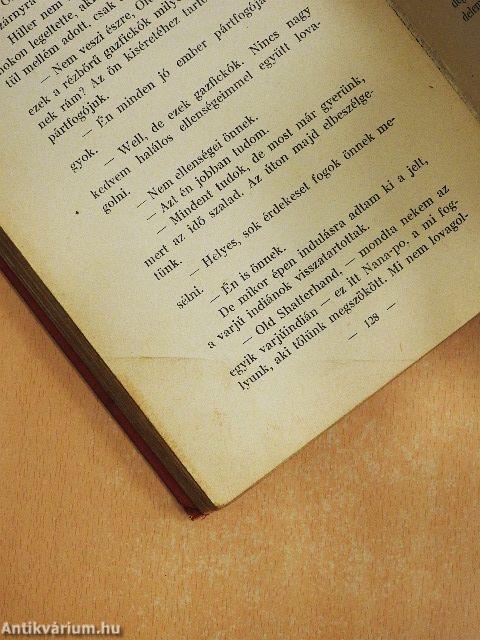 szárnyra
Hiller nem
mokon legeltette, aki
túl mellém adott csak
— Nem veszi észre, Ol
ezek a rézbőrű gazfickók mily
nek rám? Az ön kíséretéhez tarto
pártfogójuk.
— Én minden jó ember pártfogója
gyok.
— Well, de ezek gazfickók. Nincs nagy
kedvem halálos ellenségeimmel együtt lova-
golni.
— Nem ellenségei önnek.
— Azt én jobban tudom.
— Mindent tudok, de most már gyerünk,
mert az idő szalad. Az úton majd elbeszélge-
tünk.
— Helyes, sok érdekeset fogok önnek me-
sélni.
— Én is önnek.
De mikor épen indulásra adtam ki a jelt,
a varjú indiánok visszatartottak.
— Old Shatterhand, — mondta nekem az
egyik varjúindián — ez itt Nana-po, a mi fog-
lyunk, aki tőlünk megszökött. Mi nem lovagol-
— 128 —
Antikvárium.hu